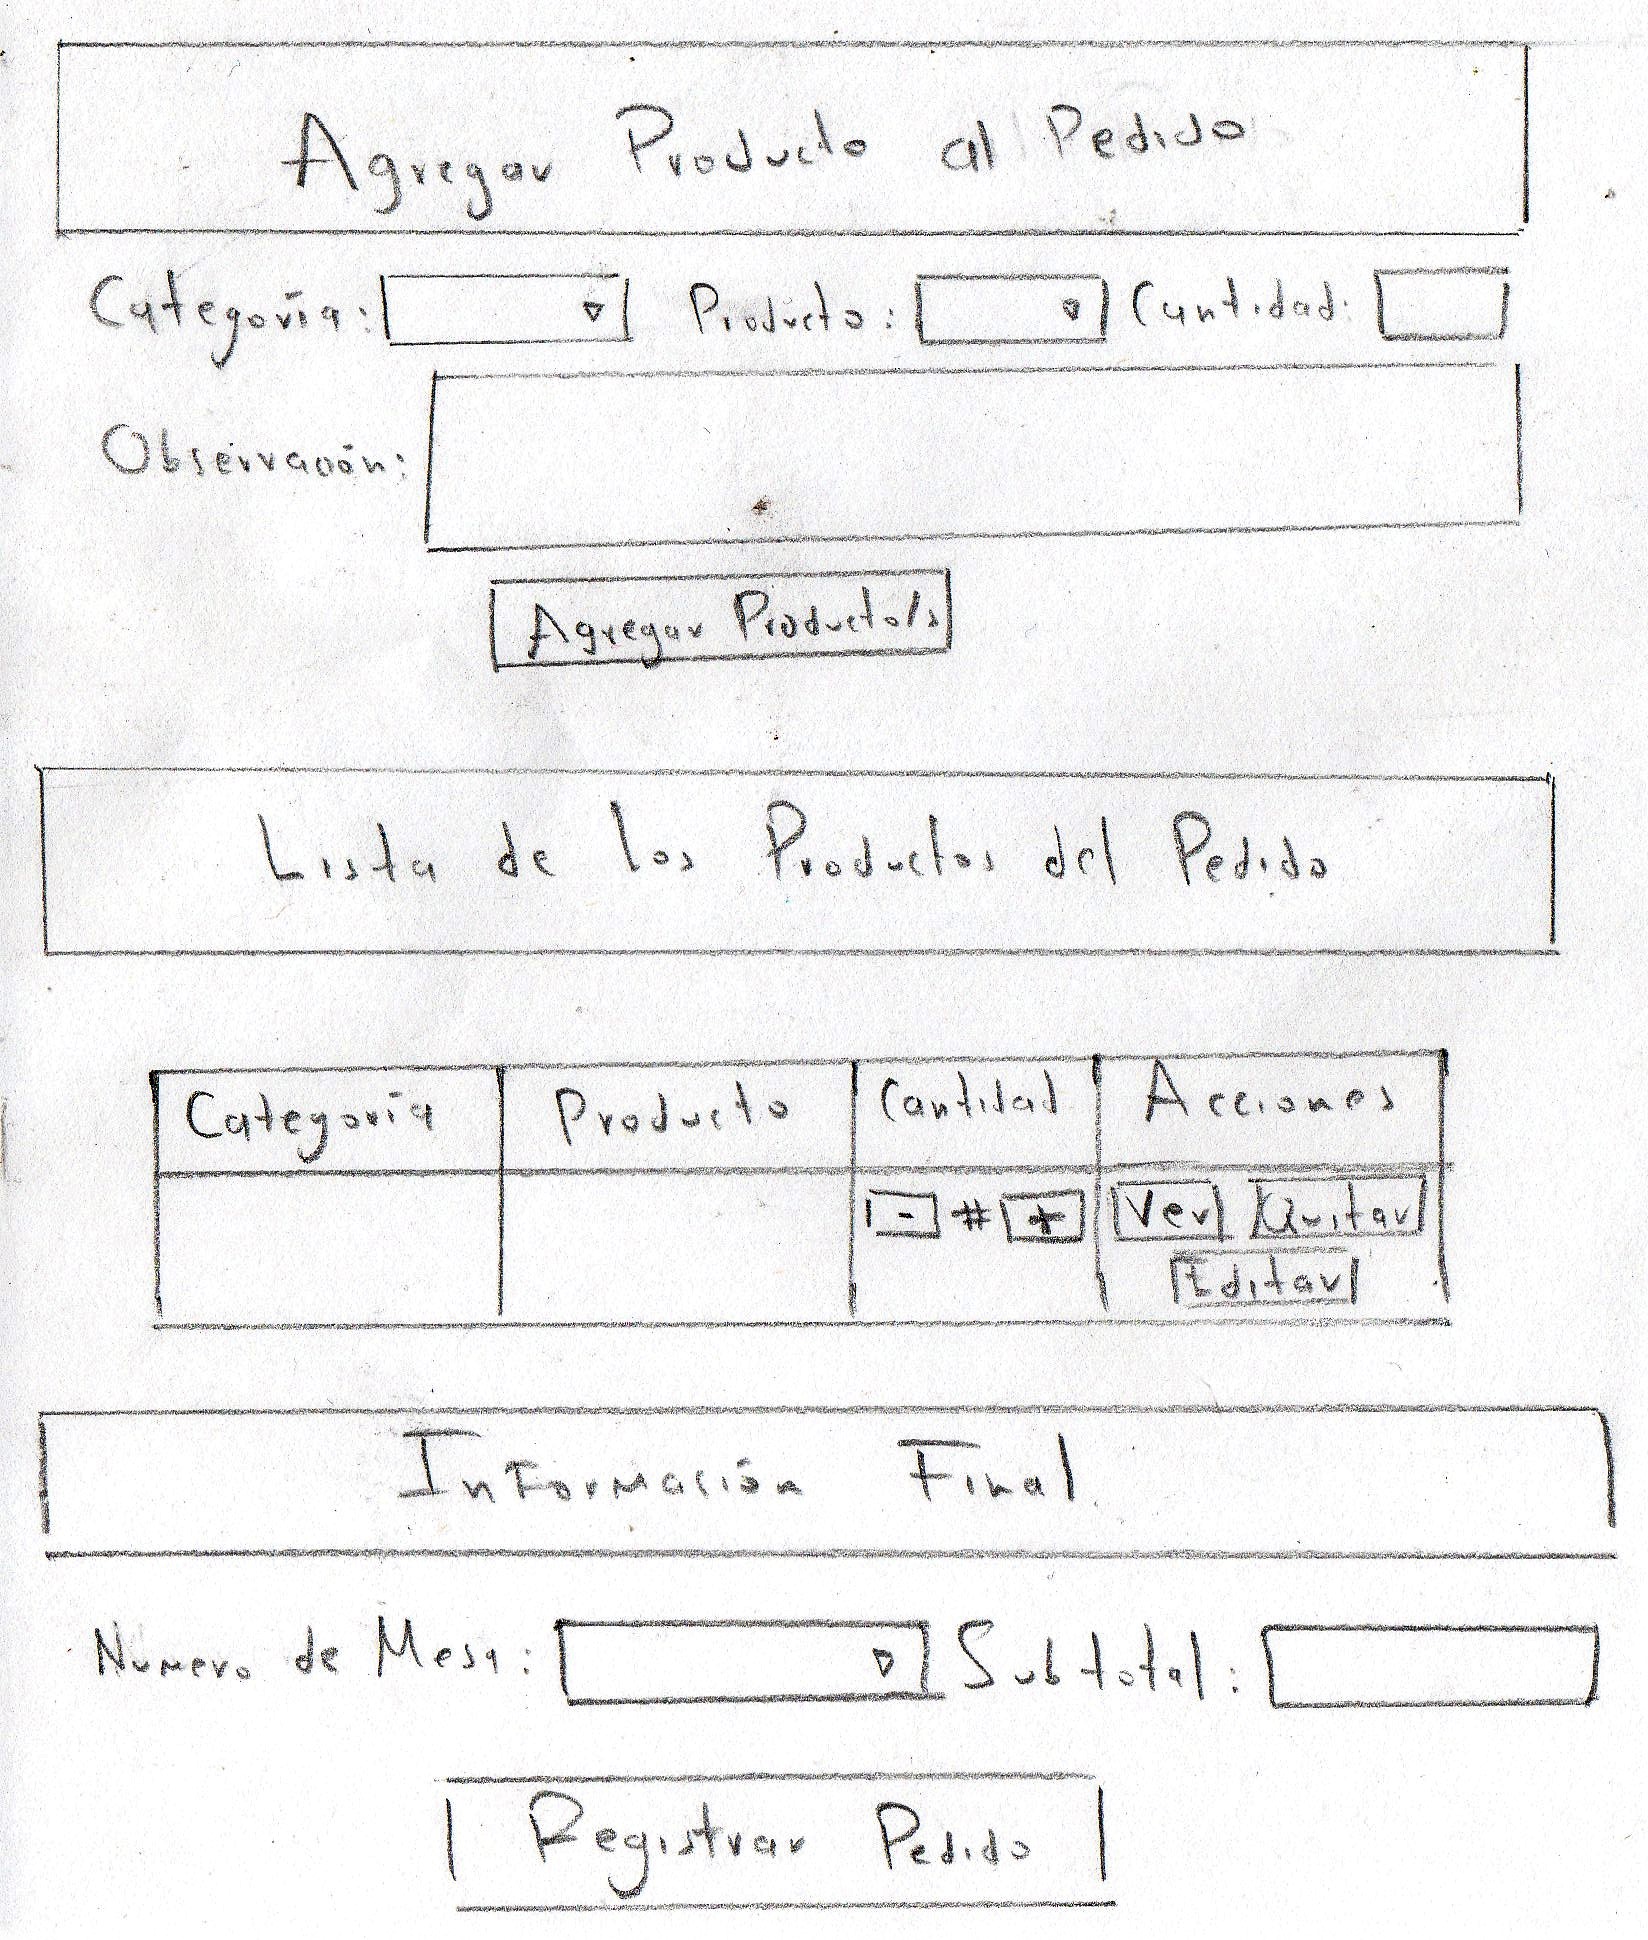 Agregar Producto al Pedido
Categoría: Producto: Cantidad:
Observación:
Agregar Producto/s
Lista de los Productos del Pedido
Categoría Producto Cantidad Acciones
- # + Ver Quitar
Editar
Información Final
Numero de Mesa: Subtotal:
Registrar Pedido